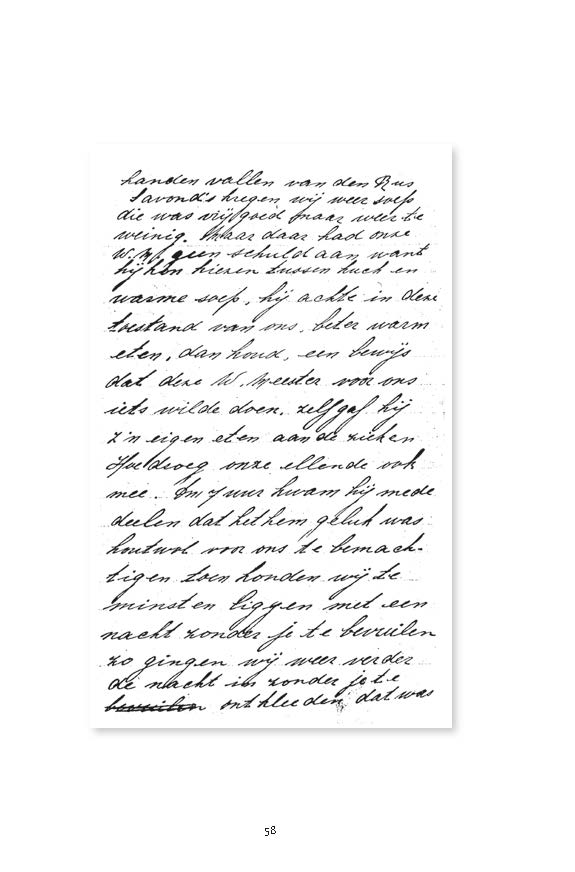 handen vallen van den Rus
Savond's kregen wij weer soep
die was vrij goed maar weer te
weinig. Maar daar had onze
W.M. geen schuld aan want
hij kon kiezen tussen kuch en
warme soep, hij achte in deze
toestand van ons, beter warm
eten, dan koud, een bewijs
dat deze W. Meester voor ons
iets wilde doen, zelf gaf hij
z'n eigen eten aan de zieken
Hoe droeg onze ellende ook
mee. Om 7 uur kwam hij mede
deelen dat het hem geluk was
houtwol voor ons te bemach-
tigen toen konden wij te
minsten liggen met een
nacht zonder je te bevuilen
zo gingen wij weer verder
de nacht in zonder je te
bevuilen ontkleeden dat was
58